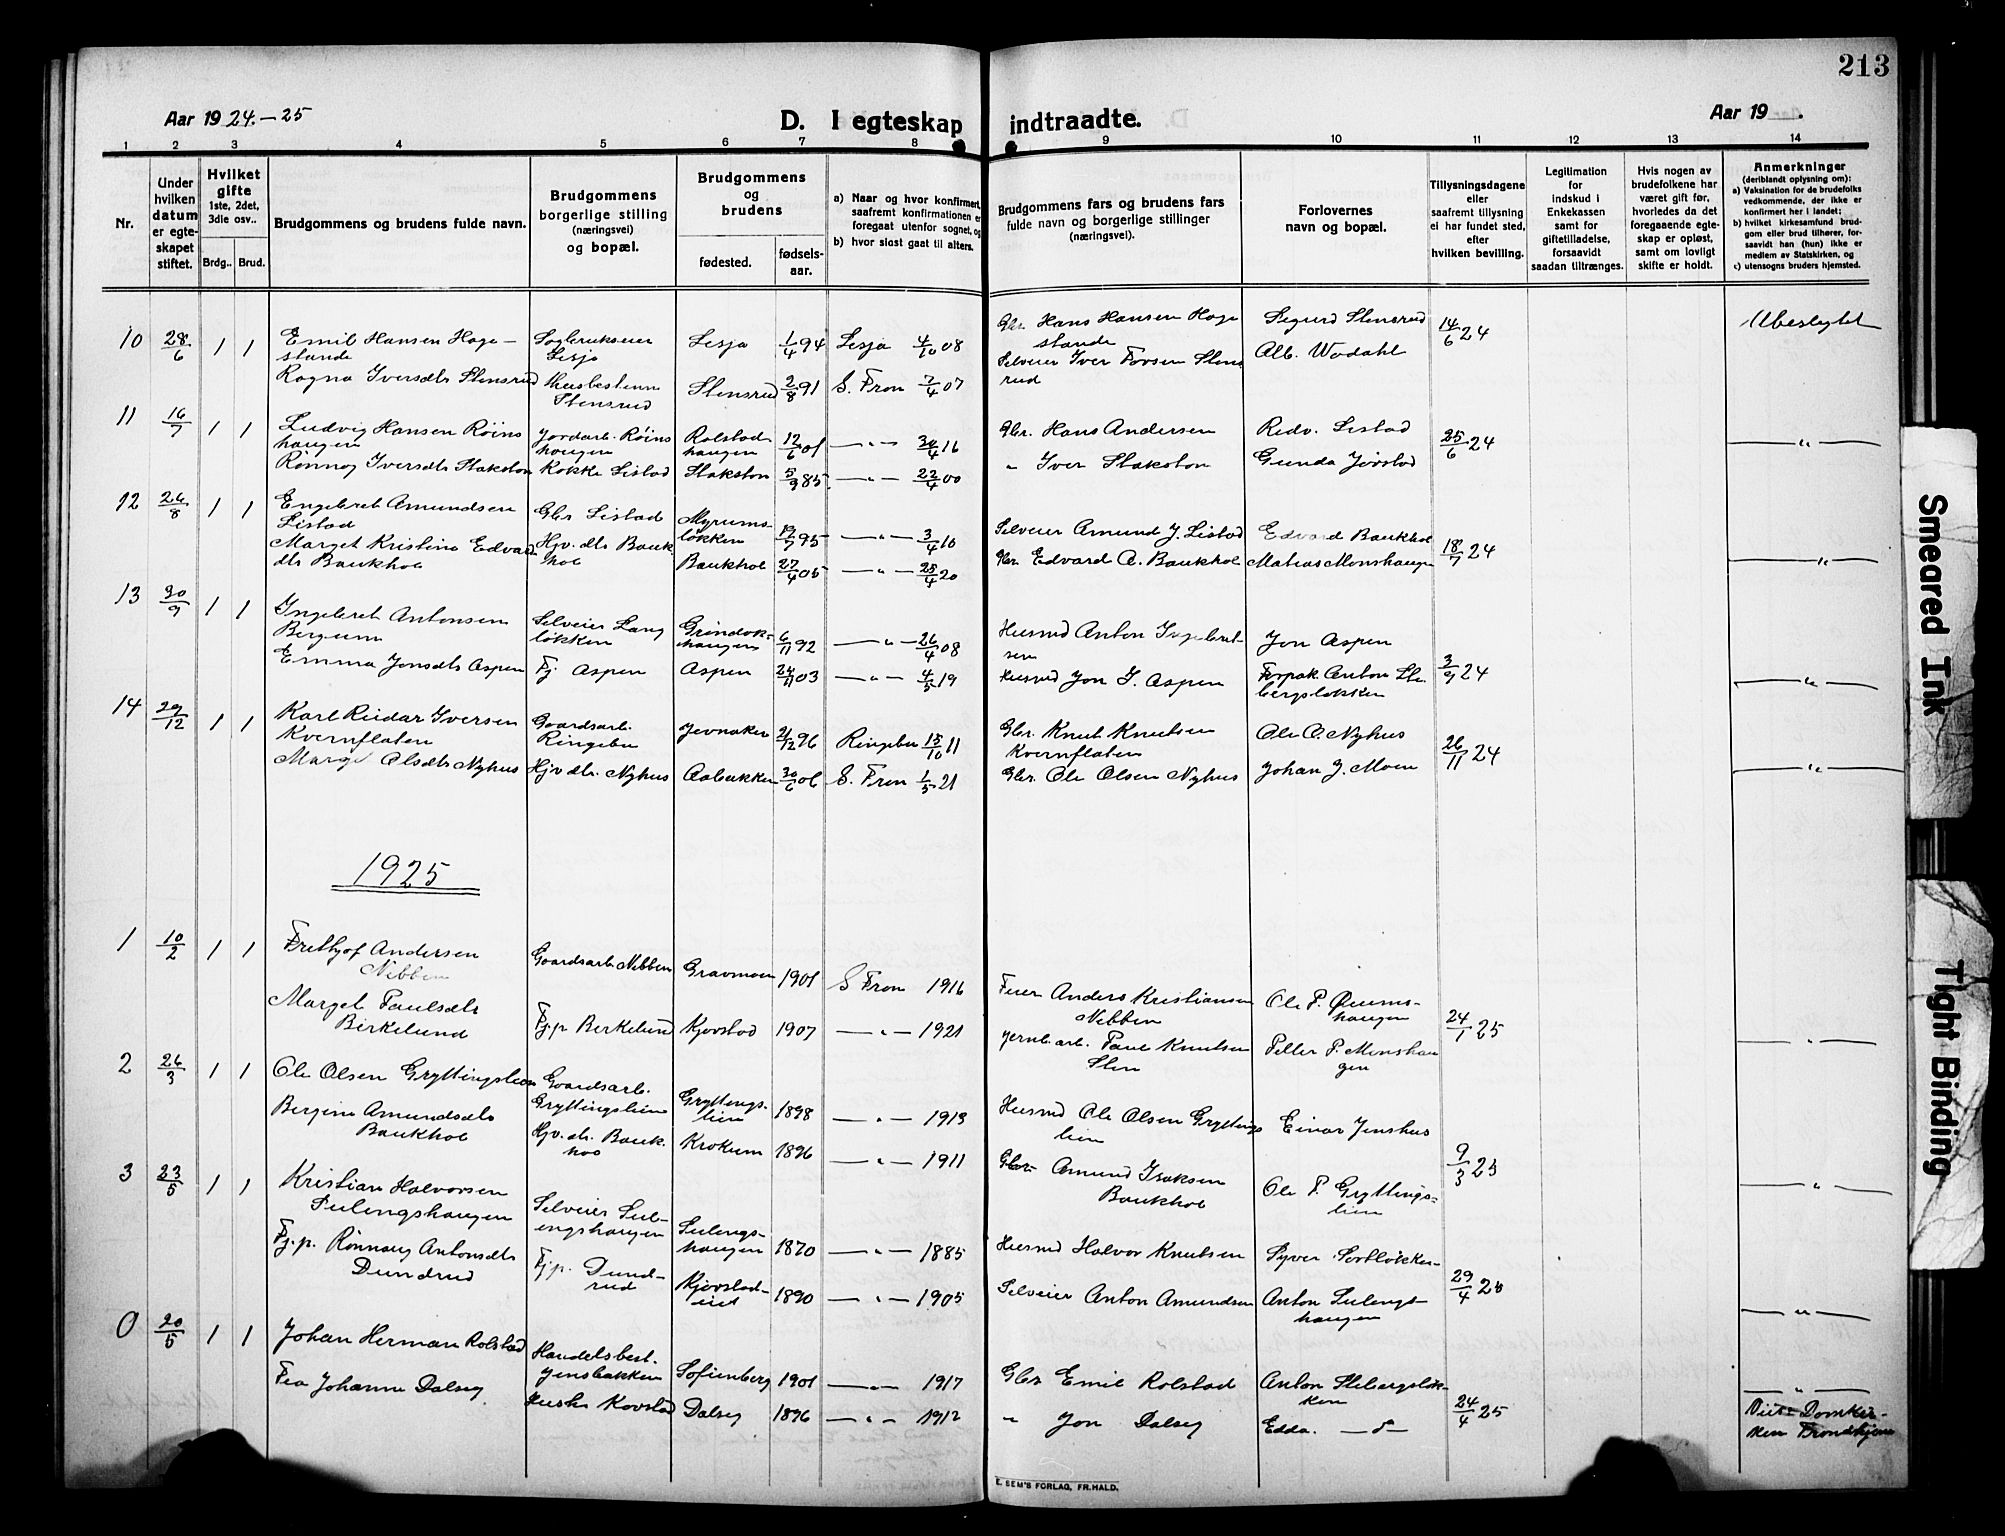 213
Aar 1924.-25
D. I egteskap indtraadte.
Aar 19 .
1 2 3 4 5 6 7 8 9 10 11 12 13 14
Nr.
Under hvilken datum er egteskapet stiftet.
Hvilket gifte
1ste, 2det, 3die osv..
Brdg.. Brud.
Brudgommens og brudens fulde navn.
Brudgommens borgerlige stilling (næringsvei) og bopæl.
Brudgommens og brudens
fødested.
fødsels-aar.
a) Naar og hvor konfirmert, saafremt konfirmationen er foregaat utenfor sognet, og
b) hvor sidst gaat til alters.
Brudgommens fars og brudens fars
fulde navn og borgerlige stillinger
(næringsvei).
Forlovernes
navn og bopæl.
Tillysningsdagene eller saafremt tillysning ei har fundet sted, efter hvilken bevilling.
Legitimation for indskud i Enkekassen samt for giftetilladelse, forsaavidt saadan tiltrænges.
Hvis nogen av brudefolkene har været gift før, hvorledes da det foregaaende egteskap er opløst, samt om lovligt skifte er holdt.
Anmerkninger
(deriblandt oplysning om):
a) Vaksination for de brudefolks vedkommende, der ikke er konfirmert her i landet;
b) hvilket kirkesamfund brudgom eller brud tilhører, forsaavidt han (hun) ikke er medlem av Statskirken, og
c) utensogns bruders hjemsted.
10 28/6 1 1 Emil Hansen Hagestande Sagbrukseier Lesja Lesja 1/4 94 Lesja 4/10 08 Gbr. Hans Hansen Hagestande Sigurd Stensrud 14/6 24 Ubeslegtet
Ragna Iversdtr Stensrud Husbesterinne Stensrud Stensrud 2/8 91 S. Fron 7/4 07 Selveier Iver Torsen Stensrud Alb. Wadahl
11 16/7 1 1 Ludvig Hansen Røinshaugen Jordarb. Røinshaugen Rolstadhaugen 12/6 01 — " — 30/4 16 Gbr. Hans Andersen Redv. Listad 25/6 24 — " —
Rønnog Iversdtr Stakston Kokke Listad Stakston 5/9 85 — " — 22/4 00 " Iver Stakston Gunda Jørstad
12 26/8 1 1 Engebret Amundsen Listad Gbr Listad Myrumsløkken 19/7 95 — " — 3/4 10 Selveier Amund J. Listad Edvard Baukhol 18/7 24 — " —
Marget Kristine Edvarddtr Baukhol Hjv. dtr Baukhol Baukhol 27/4 05 — " — 25/4 20 Gbr. Edvard A. Baukhol Matias Monshaugen
13 30/9 1 1 Ingebret Antonsen Bergum Selveier Langløkken Grindakshaugen 6/11 92 — " — 26/4 08 Husmd Anton Ingebretsen Jon Aspen 3/9 24 — " —
Emma Jonsdtr Aspen Fj. Aspen Aspen 24/11 03 — " — 4/5 19 Husmd Jon I. Aspen Forpak. Anton Stebergsløkken
14 29/12 1 1 Karl Reidar Iversen Kvernflaten Gaardsarb. Ringebu Jevnaker 21/12 96 Ringebu 15/10 11 Gbr. Knut Knutsen Kvernflaten Ole O. Nyhus 26/11 24 — " —
Marge Olsdtr Nyhus Hjv dtr. Nyhus Aabakken 30/6 06 S. Fron 1/5 21 Gbr. Ole Olsen Nyhus Johan J. Moen
1925
1 10/2 1 1 Frithjof Andersen Nibben Gaardsarb Nibben Gravmoen 1901 S Fron 1916 Feier Anders Kristiansen Nibben Ole P. haugen 24/1 25 — " —
Marget Paulsdtr Birkelund Fj.p. Birkelund Kjorstad 1907 — " — 1921 Jernb. arb. Paul Knutsen Sten Petter P. Monshaugen
2 26/3 1 1 Ole Olsen Gryttingslien Gaardsarb. Gryttingslien Gryttingslien 1898 — " — 1913 Husmd Ole Olsen Gryttingslien Einar Jenshus 9/3 25 — " —
Bergine Amundsdtr Baukhol Hjv. dtr. Baukhol Krokum 1896 — " — 1911 Gbr Amund Isaksen Baukhol Ole P. Gryttingslien
3 23/5 1 1 Kristian Halvorsen Sulengshaugen Selveier Sulengshaugen Sulengshaugen 1870 — " — 1885 Husmd Halvor Knutsen Syver Sortløkken 29/4 25 — " —
Fj.p. Rønnaug Antonsdtr Dundrud Fj.p. Dundrud Kjorstadeiet 1890 — " — 1905 Selveier Anton Amundsen Anton Sulengshaugen
0 20/5 1 1 Johan Herman Rolstad Handelsbest. Jensbakken Sofienberg 1901 — " — 1917 Gbr Emil Rolstad Anton Stebergsløkken 24/4 25 — " —
Fea Johanne Dalseg Hush. Kovstad Dalseg 1896 — " — 1912 " Jon Dalseg Edda. — " — Viet i Domkirken Trondhjem
E. SEM'S FORLAG, FR.HALD.
Smeared Ink
Tight Binding